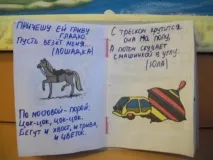 Причешу ей гриву
гладко
Пусть везёт меня...
(лошадка)
По мостовой-горой:
Цок-цок, цок-цок,
Бегут и хвост, и грива,
и
С треском крутится
она на полу,
А потом скучает
с машинкой в углу.
(юла)